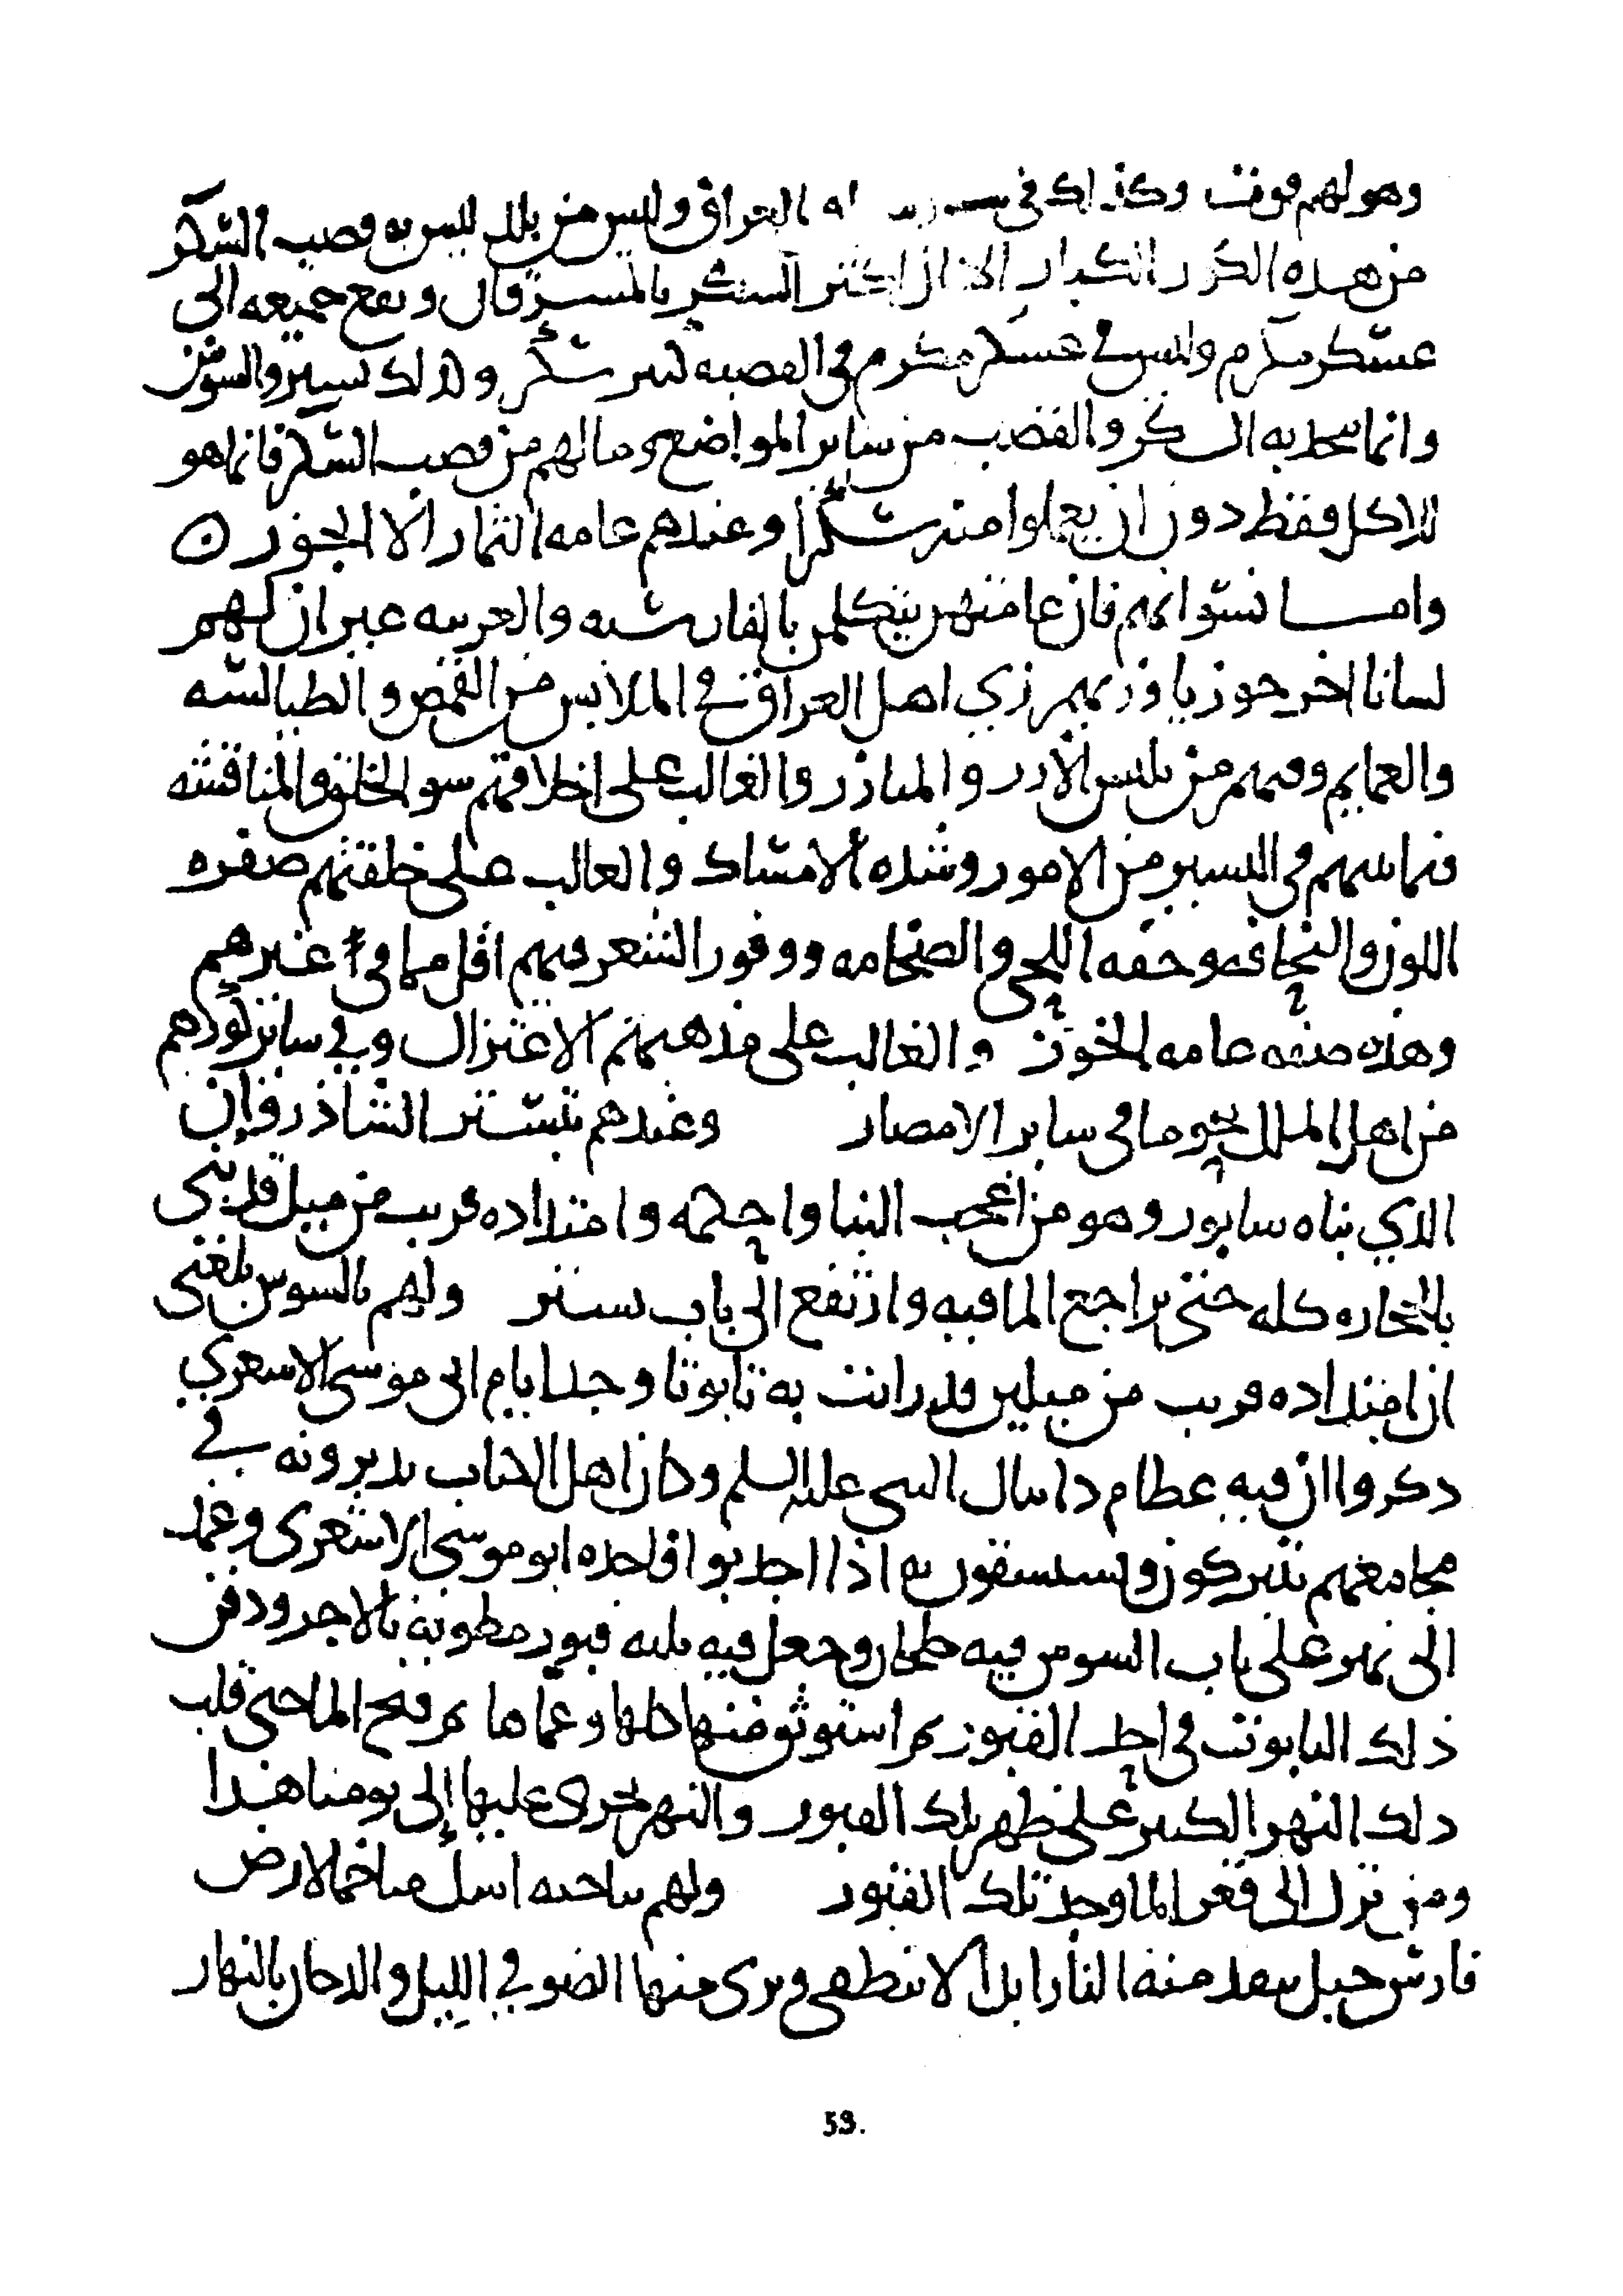 وهو لهم قوت وكذلك في العراق وليس من بلد ليس به قصب السكر
من هذه الكور الكبار الا ان اكثر السكر بالمسرقان ويقع جميعه الى
عسكر مكرم وليس في عسكر مكرم في القصبه كثير سكر وكذلك بتستر والسوس
وانما يتخذ به السكر والقصب من ساير المواضع وما لهم من قصب السكر فانما هو
للاكل فقط دون ان يعملوا منه سكرا وعندهم عامه الثمار الا الجوز ه
واما لسانهم فان عامتهم يتكلمن بالفارسيه والعربيه غير ان لهم
لسانا اخر خوزيا وزيهم زي اهل العراق في الملابس من القمص والطيالسه
والعمايم وفيهم من يلبس الازر والميازر والغالب على اخلاقهم سو الخلق والمنافسه
فيما بينهم في اليسير من الامور وشده الامساك والغالب على خلقتهم صفره
اللون والنحافه وخفه اللحى والضخامه ووفور الشعر فيهم اقل مما في غيرهم
وهذه صفه عامه الخوز والغالب على مذهبهم الاعتزال وفي ساير كورهم
من اهل الملل نحو ما في ساير الامصار وعندهم بتستر الشاذروان
الذي بناه سابور وهو من اعجب البنا واحكمه وامتداده قريب من ميل قد بني
بالحجاره كله حتى تراجع الما فيه وارتفع الى باب تستر ولهم بالسوس بلغني
ان امتداده قريب من ميلين قد رايت به تابوتا وجد ايام ابي موسى الاشعري
ذكروا ان فيه عظام دانيال النبي عليه السلم وكان اهل الكتاب يديرونه في
مجامعهم يتبركون ويستسقون به اذا اجدبوا فاخذه ابو موسى الاشعري وعمد
الى نهر على باب السوس فيه خلجان وجعل فيه ثلثه قبور مطويه بالاجر ودفن
ذلك التابوت في احد القبور ثم استوثق منها كلها وعماها ثم فتح الما حتى قلب
ذلك النهر الكبير على ظهر تلك القبور والنهر يجري عليها إلى يومنا هذا
ومن نزل الى قعر الما وجد تلك القبور ولهم بناحيه اسك متاخما لارض
فارس جبل يتقد منه النار ابدا لا تنطفي ويرى منها الضو في الليل والدخان بالنهار
53.